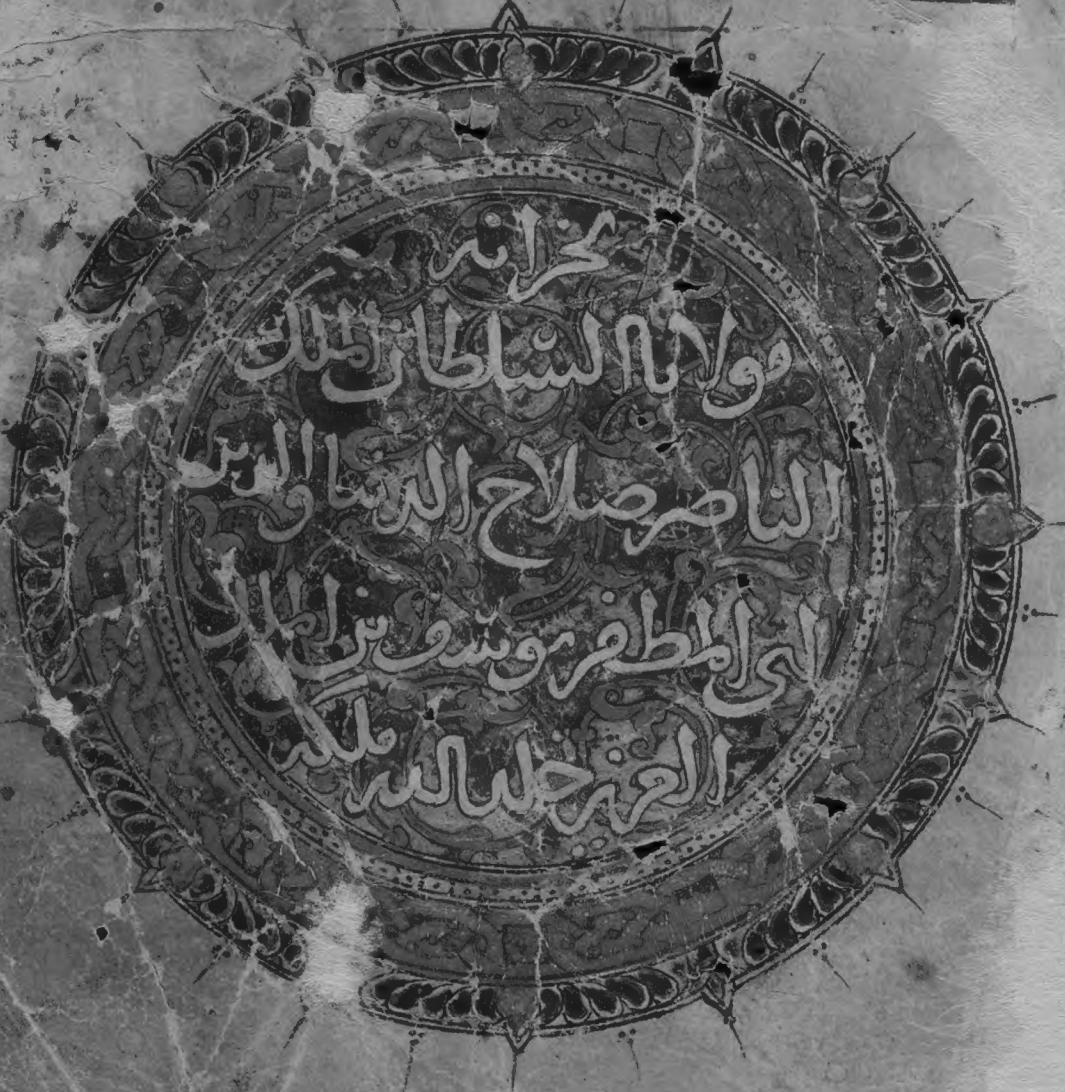 لخزانة
مولانا السلطان الملك
الناصر صلاح الدنيا والدين
ابى المظفر يوسف بن الملك
العزيز خلد الله ملكه